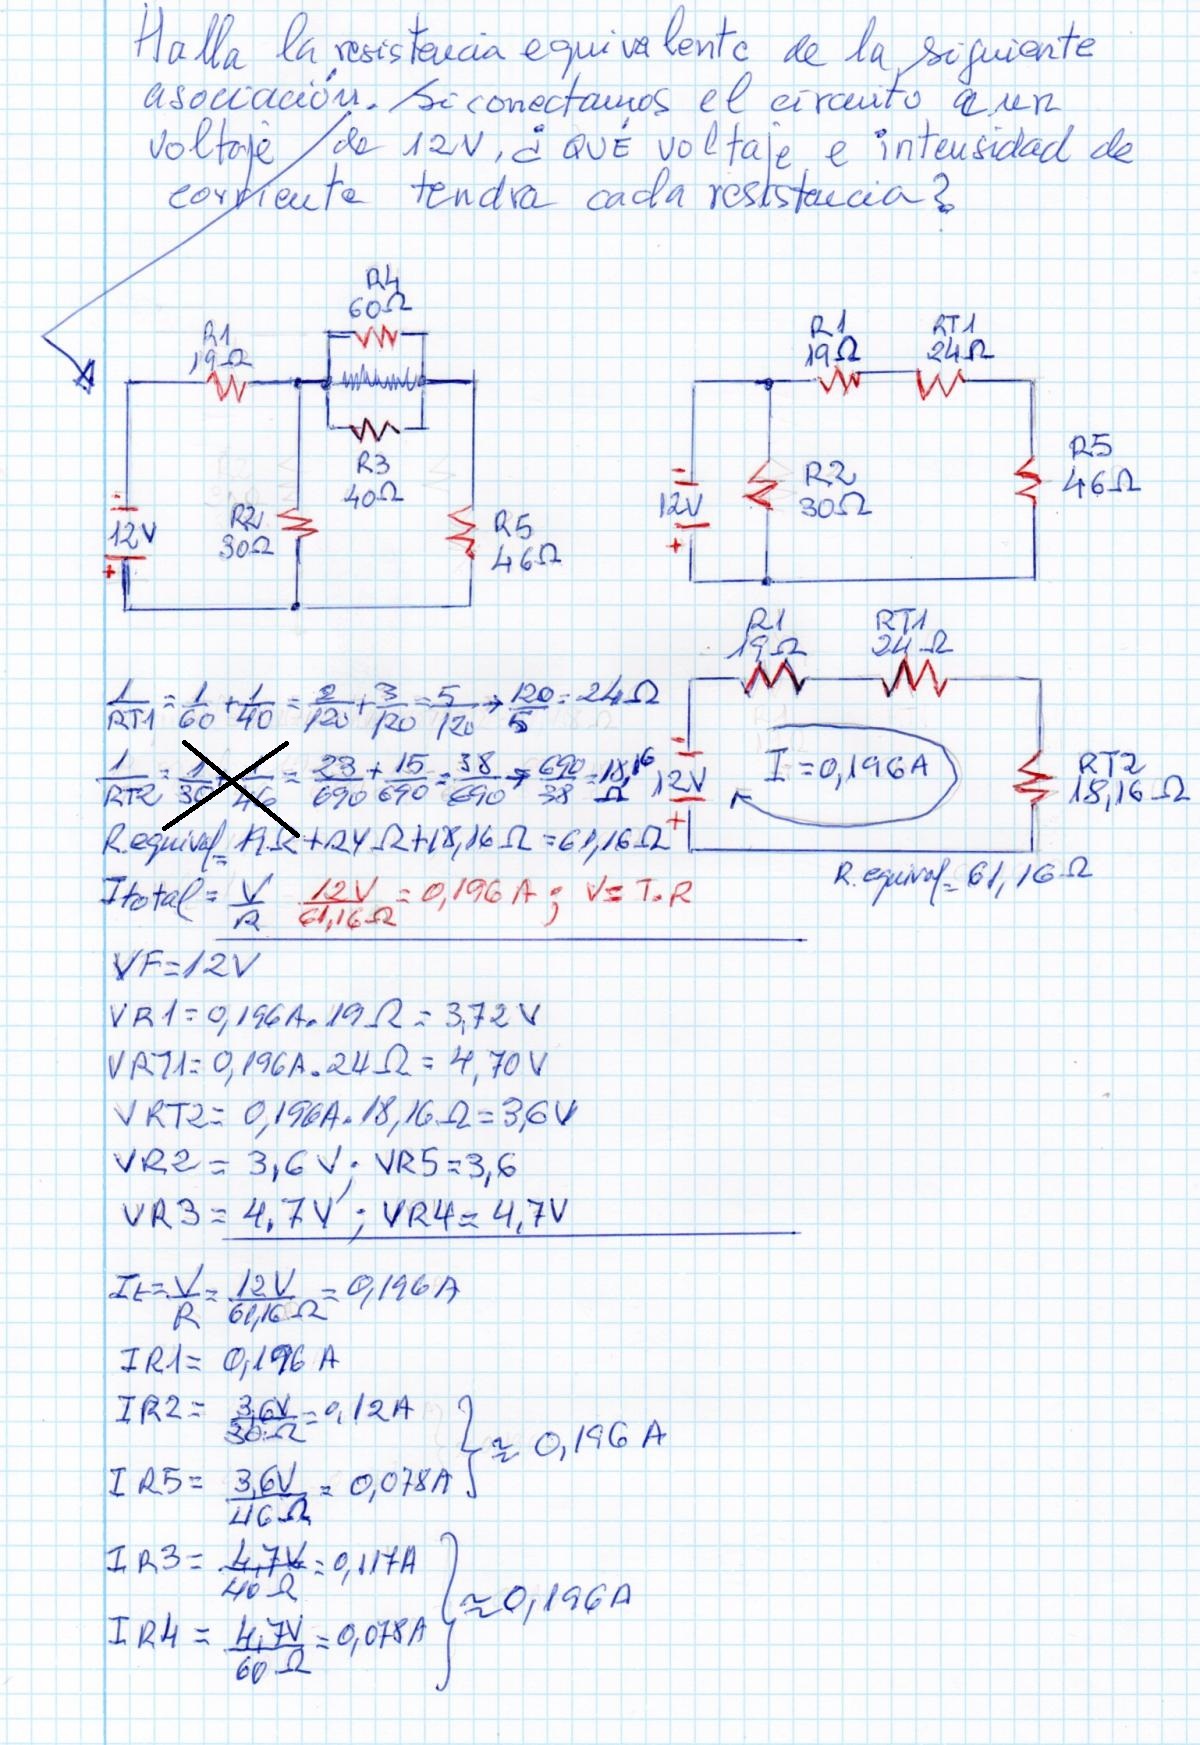 Halla la resistencia equivalente de la siguiente
asociación. Si conectamos el circuito a un
voltaje de 12V, ¿QUÉ voltaje e intensidad de
corriente tendra cada resistencia?
R4
60Ω
R1
19Ω
R3
40Ω
R2
30Ω
R5
46Ω
-
12V
+
R1
19Ω
RT1
24Ω
R2
30Ω
R5
46Ω
-
12V
+
R1
19Ω
RT1
24Ω
-
12V
+
I=0,196A
RT2
18,16Ω
R.equival=61,16Ω
1/RT1=1/60+1/40=2/120+3/120=5/120→120/5=24Ω
1/RT2=1/30+1/46=23/690+15/690=38/690→690/38=18,16Ω
R.equival=19Ω+24Ω+18,16Ω=61,16Ω
Itotal=V/R 12V/61,16Ω=0,196A; V=I.R
VF=12V
VR1=0,196A.19Ω=3,72V
VRT1=0,196A.24Ω=4,70V
VRT2=0,196A.18,16Ω=3,6V
VR2=3,6V; VR5=3,6
VR3=4,7V; VR4=4,7V
It=V/R=12V/61,16Ω=0,196A
IR1=0,196A
IR2=3,6V/30Ω=0,12A
IR5=3,6V/46Ω=0,078A
} ≈ 0,196A
IR3=4,7V/40Ω=0,117A
IR4=4,7V/60Ω=0,078A
} ≈0,196A